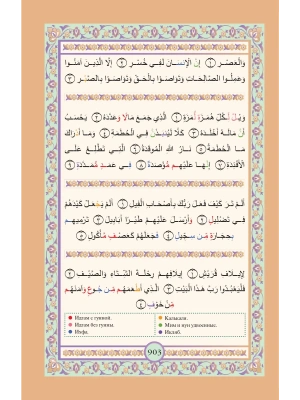 وَالْعَصْرِ ۝١ إِنَّ الْإِنسَانَ لَفِي خُسْرٍ ۝٢ إِلَّا الَّذِينَ آمَنُوا
وَعَمِلُوا الصَّالِحَاتِ وَتَوَاصَوْا بِالْحَقِّ وَتَوَاصَوْا بِالصَّبْرِ ۝٣
وَيْلٌ لِّكُلِّ هُمَزَةٍ لُّمَزَةٍ ۝١ الَّذِي جَمَعَ مَالًا وَعَدَّدَهُ ۝٢ يَحْسَبُ
أَنَّ مَالَهُ أَخْلَدَهُ ۝٣ كَلَّا لَيُنبَذَنَّ فِي الْحُطَمَةِ ۝٤ وَمَا أَدْرَاكَ
مَا الْحُطَمَةُ ۝٥ نَارُ اللَّهِ الْمُوقَدَةُ ۝٦ الَّتِي تَطَّلِعُ عَلَى
الْأَفْئِدَةِ ۝٧ إِنَّهَا عَلَيْهِم مُّؤْصَدَةٌ ۝٨ فِي عَمَدٍ مُّمَدَّدَةٍ ۝٩
أَلَمْ تَرَ كَيْفَ فَعَلَ رَبُّكَ بِأَصْحَابِ الْفِيلِ ۝١ أَلَمْ يَجْعَلْ كَيْدَهُمْ
فِي تَضْلِيلٍ ۝٢ وَأَرْسَلَ عَلَيْهِمْ طَيْرًا أَبَابِيلَ ۝٣ تَرْمِيهِم
بِحِجَارَةٍ مِّن سِجِّيلٍ ۝٤ فَجَعَلَهُمْ كَعَصْفٍ مَّأْكُولٍ ۝٥
لِإِيلَافِ قُرَيْشٍ ۝١ إِيلَافِهِمْ رِحْلَةَ الشِّتَاءِ وَالصَّيْفِ ۝٢
فَلْيَعْبُدُوا رَبَّ هَذَا الْبَيْتِ ۝٣ الَّذِي أَطْعَمَهُم مِّن جُوعٍ وَآمَنَهُم
مِّنْ خَوْفٍ ۝٤
Идгам с гунной. Калькаля.
Идгам без гунны. Мим и нун удвоенные.
Ихфа. Иклаб.
903